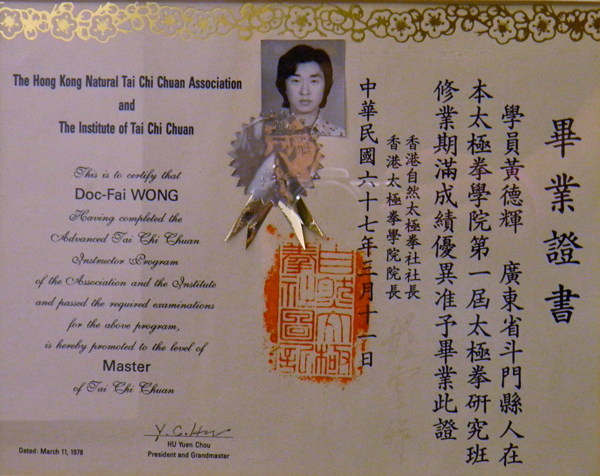 The Hong Kong Natural Tai Chi Chuan Association
and
The Institute of Tai Chi Chuan
This is to certify that
Doc-Fai WONG
Having completed the
Advanced Tai Chi Chuan
Instructor Program
of the Association and the Institute
and passed the required examinations
for the above program,
is hereby promoted to the level of
Master
of Tai Chi Chuan
Y. C. Hu
HU Yuen Chou
President and Grandmaster
Dated: March 11, 1978
畢業證書
學員黃德輝 廣東省斗門縣人在
本太極拳學院第一屆太極拳研究班
修業期滿成績優異准予畢業此證
香港自然太極拳社社長
香港太極拳學院院長
中華民國六十七年三月十一日